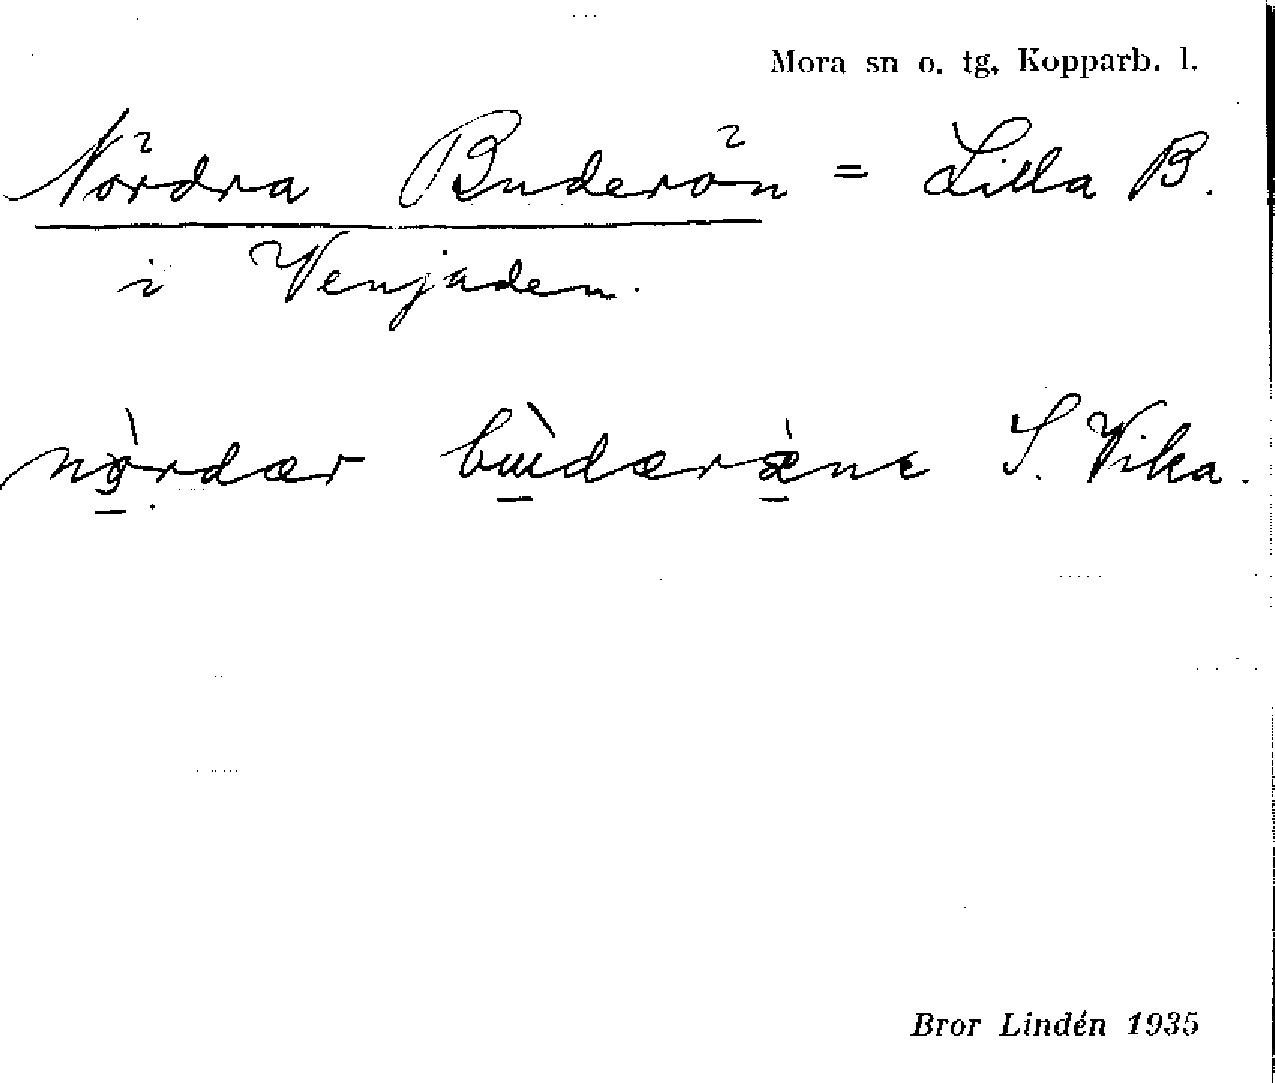 Mora sn o. tg, Kopparb. l.
Nördra Buderön = Lilla B.
i Venjaden.
nò̱rdær bɯ̱̀dæræ̱̀ne S. Vika.
Bror Lindén 1935